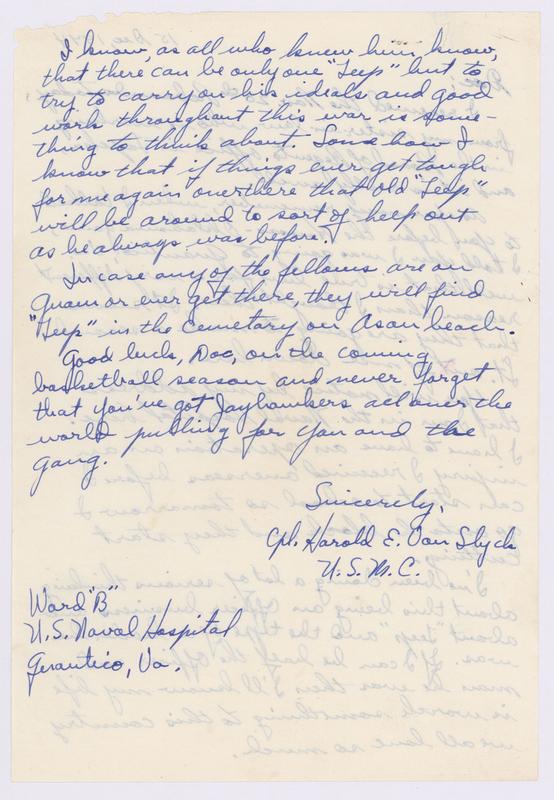 I know, as all who knew him know,
that there can be only one "Teep" but to
try to carry on his ideals and good
work throughout this war is some-
thing to think about. Somehow I
know that if things ever get tough
for me again over there that old "Teep"
will be around to sort of help out
as he always was before.
In case any of the fellows are on
Guam or ever get there, they will find
"Teep" in the cemetary on Asan beach.
Good luck, Doc, on the coming
basketball season and never forget
that you've got Jayhawkers all over the
world pulling for you and the
gang.
Sincerely,
Cpl. Harold E. Van Slyck
U.S.M.C.
Ward "B"
U.S. Naval Hospital
Quantico, Va.